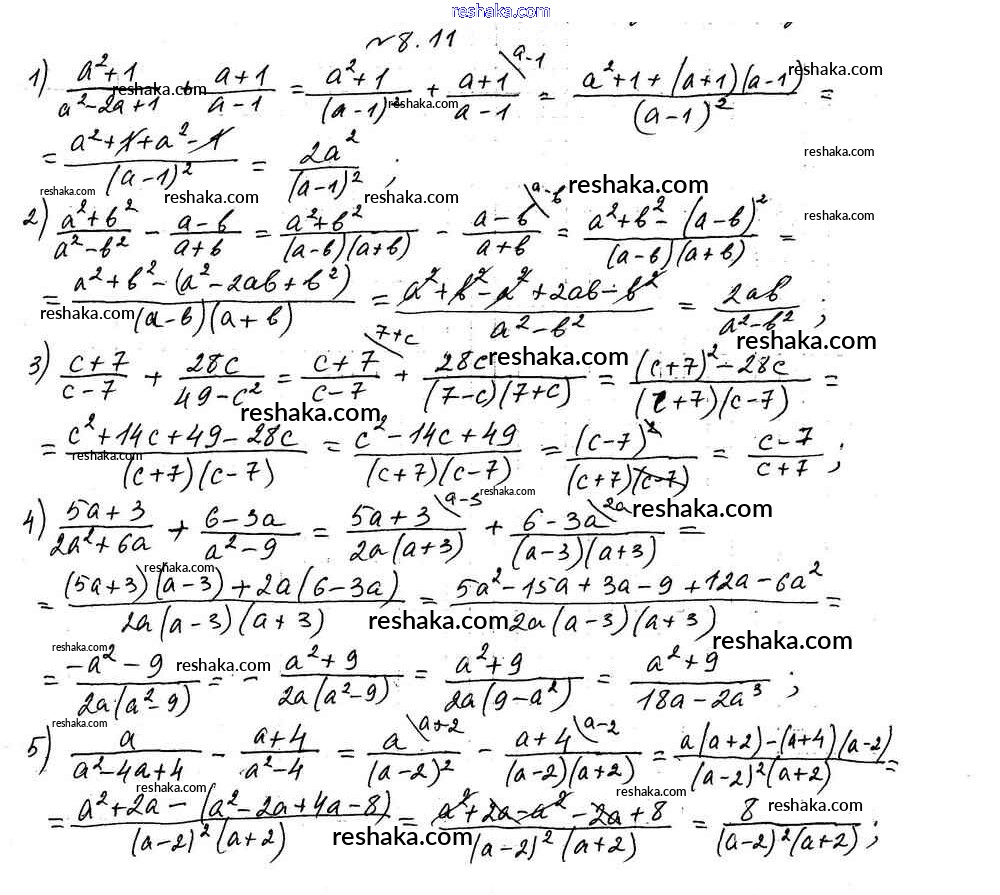 reshaka.com
№8.11
1) (a²+1)/(a²-2a+1) + (a+1)/(a-1) = (a²+1)/((a-1)²) + (a+1)/(a-1) \a-1 = (a²+1+(a+1)(a-1))/((a-1)²) =
= (a²+1+a²-1)/((a-1)²) = 2a²/((a-1)²) ;
2) (a²+b²)/(a²-b²) - (a-b)/(a+b) = (a²+b²)/((a-b)(a+b)) - (a-b)/(a+b) \a-b = (a²+b²-(a-b)²)/((a-b)(a+b)) =
= (a²+b²-(a²-2ab+b²))/((a-b)(a+b)) = (a²+b²-a²+2ab-b²)/(a²-b²) = 2ab/(a²-b²) ;
3) (c+7)/(c-7) + 28c/(49-c²) = (c+7)/(c-7) \7+c + 28c/((7-c)(7+c)) = ((c+7)²-28c)/((c+7)(c-7)) =
= (c²+14c+49-28c)/((c+7)(c-7)) = (c²-14c+49)/((c+7)(c-7)) = (c-7)²/((c+7)(c-7)) = (c-7)/(c+7) ;
4) (5a+3)/(2a²+6a) + (6-3a)/(a²-9) = (5a+3)/(2a(a+3)) \a-3 + (6-3a)/((a-3)(a+3)) \2a =
= ((5a+3)(a-3)+2a(6-3a))/(2a(a-3)(a+3)) = (5a²-15a+3a-9+12a-6a²)/(2a(a-3)(a+3)) =
= (-a²-9)/(2a(a²-9)) = - (a²+9)/(2a(a²-9)) = (a²+9)/(2a(9-a²)) = (a²+9)/(18a-2a³) ;
5) a/(a²-4a+4) - (a+4)/(a²-4) = a/((a-2)²) \a+2 - (a+4)/((a-2)(a+2)) \a-2 = (a(a+2)-(a+4)(a-2))/((a-2)²(a+2)) =
= (a²+2a-(a²-2a+4a-8))/((a-2)²(a+2)) = (a²+2a-a²-2a+8)/((a-2)²(a+2)) = 8/((a-2)²(a+2)) ;